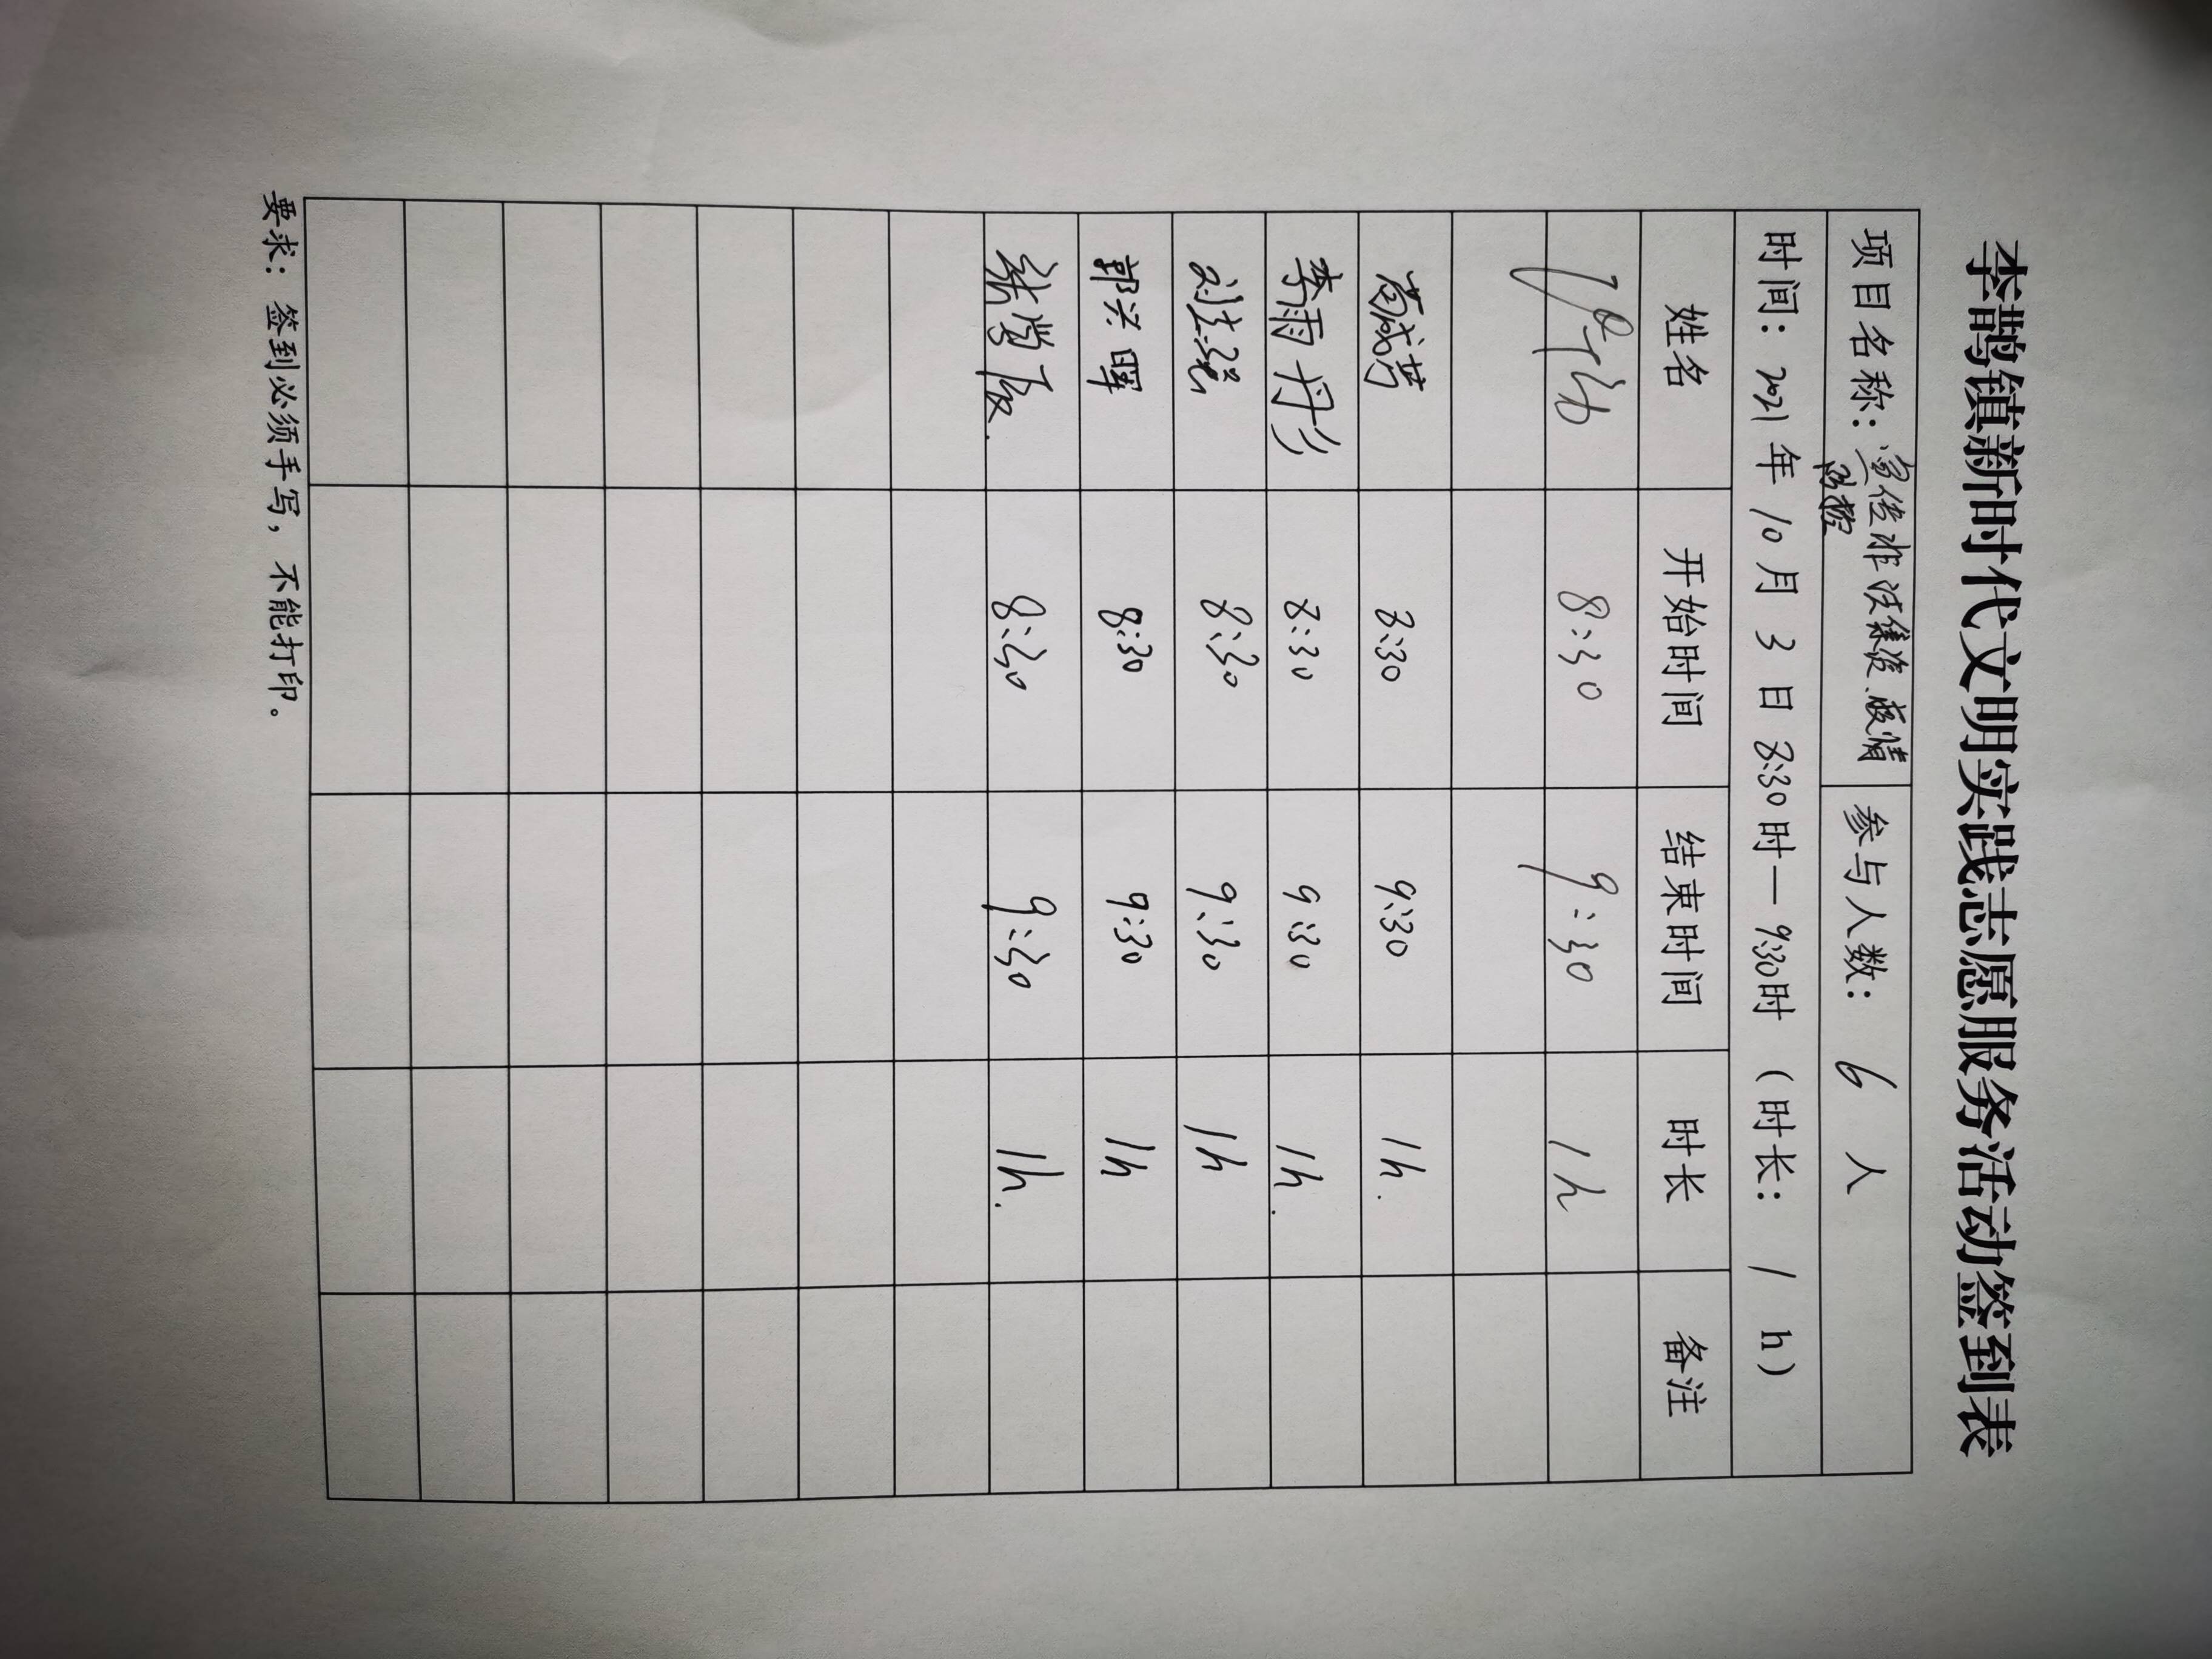 李鹊镇新时代文明实践志愿服务活动签到表
项目名称：宣传非法集资、疫情防控 参与人数：6 人
时间：2021 年 10 月 3 日 8:30时—9:30时（时长：1 h）
姓名 开始时间 结束时间 时长 备注
8:30 9:30 1h
8:30 9:30 1h.
李雨彤 8:30 9:30 1h.
刘 8:30 9:30 1h
郭兴晖 8:30 9:30 1h
张 8:30 9:30 1h.
要求：签到必须手写，不能打印。